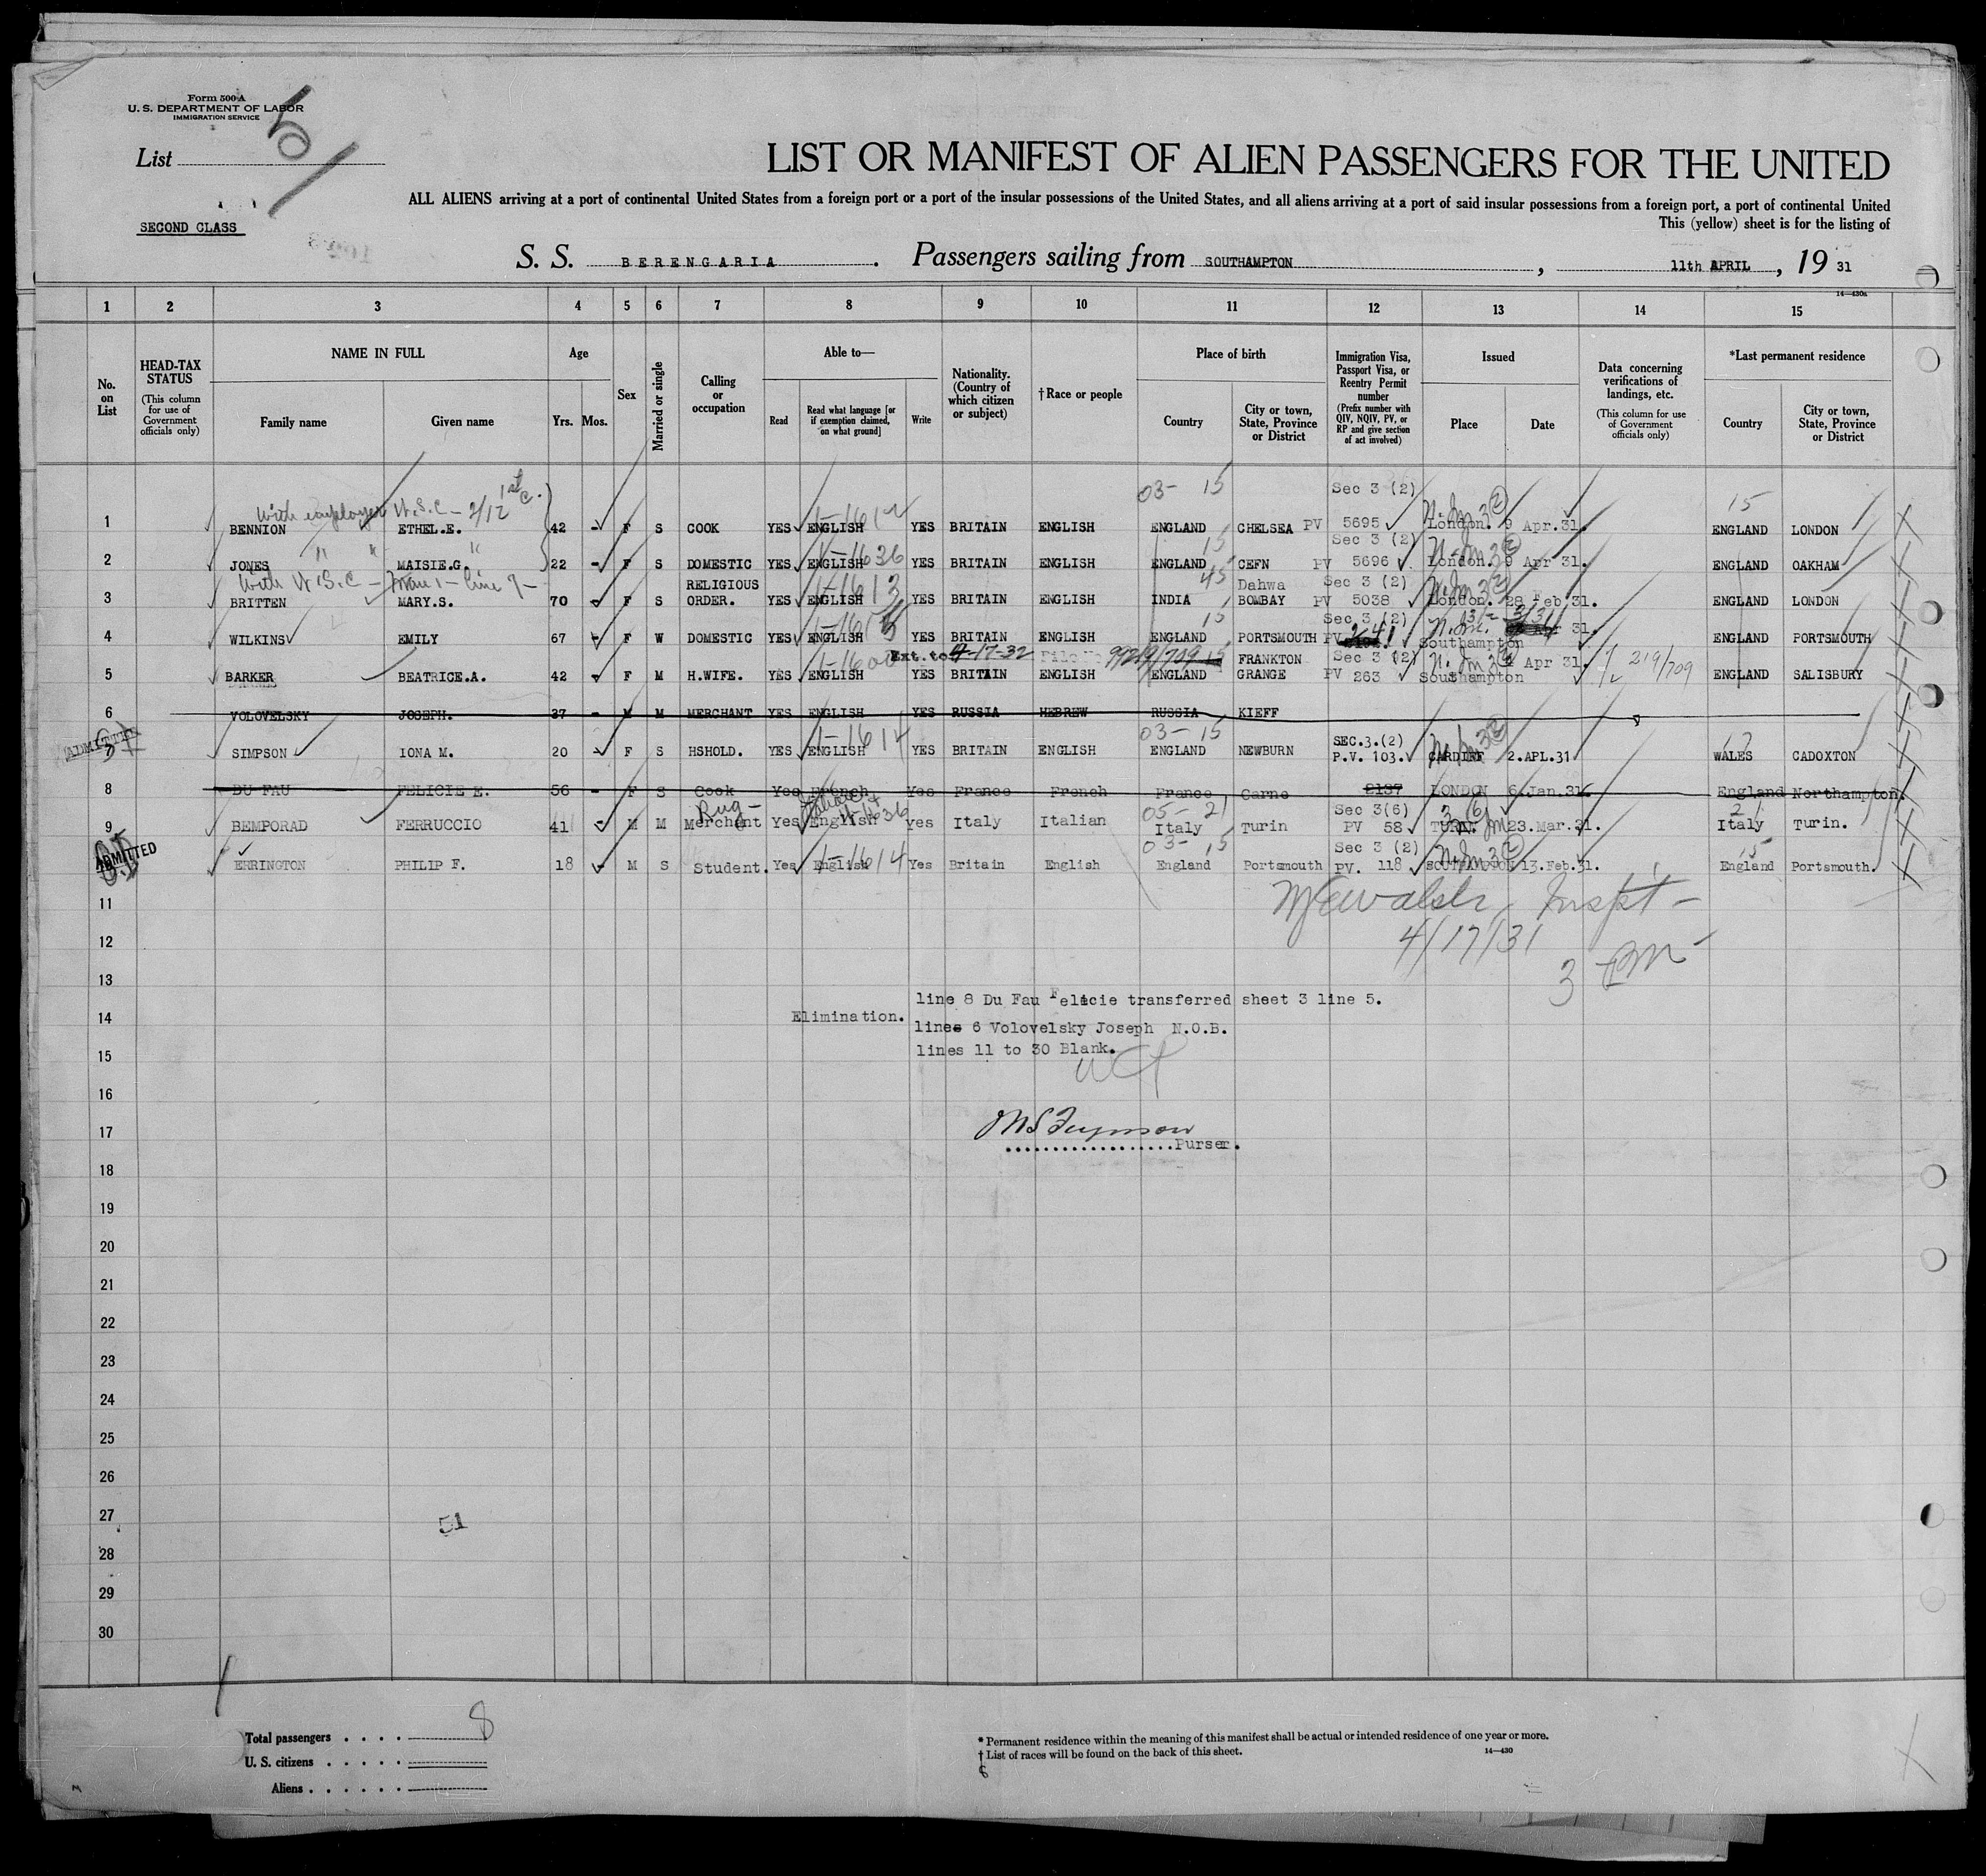 Form 500 A
U. S. DEPARTMENT OF LABOR
IMMIGRATION SERVICE
List 5
SECOND CLASS
LIST OR MANIFEST OF ALIEN PASSENGERS FOR THE UNITED
ALL ALIENS arriving at a port of continental United States from a foreign port or a port of the insular possessions of the United States, and all aliens arriving at a port of said insular possessions from a foreign port, a port of continental United
This (yellow) sheet is for the listing of
S. S. BERENGARIA. Passengers sailing from SOUTHAMPTON, 11th APRIL, 19 31
14—430a
1 2 3 4 5 6 7 8 9 10 11 12 13 14 15
No. on List
HEAD-TAX STATUS (This column for use of Government officials only)
NAME IN FULL Family name Given name
Age Yrs. Mos.
Sex
Married or single
Calling or occupation
Able to— Read Read what language [or if exemption claimed, on what ground] Write
Nationality. (Country of which citizen or subject)
†Race or people
Place of birth Country City or town, State, Province or District
Immigration Visa, Passport Visa, or Reentry Permit number (Prefix number with QIV, NQIV, PV, or RP and give section of act involved)
Issued Place Date
Data concerning verifications of landings, etc. (This column for use of Government officials only)
*Last permanent residence Country City or town, State, Province or District
With employer W.S.C - 2/12 1st C. 03- 15 Sec 3 (2) 15
1 BENNION ETHEL.E. 42 - F S COOK YES ENGLISH YES BRITAIN ENGLISH ENGLAND CHELSEA PV 5695 London. 9 Apr.31. ENGLAND LONDON
" " " 1-1636 15 Sec 3 (2)
2 JONES MAISIE.G. 22 - F S DOMESTIC YES ENGLISH YES BRITAIN ENGLISH ENGLAND CEFN PV 5696 London. 9 Apr 31. ENGLAND OAKHAM
With W.S.C - Man 1 - line 9 - RELIGIOUS 1-1613 45 Dahwa Sec 3 (2)
3 BRITTEN MARY.S. 70 - F S ORDER. YES ENGLISH YES BRITAIN ENGLISH INDIA BOMBAY PV 5038 London. 28 Feb 31. ENGLAND LONDON
15 Sec 3 (2)
4 WILKINS EMILY 67 - F W DOMESTIC YES ENGLISH YES BRITAIN ENGLISH ENGLAND PORTSMOUTH PV 241 Southampton 31. ENGLAND PORTSMOUTH
1-1600 Ext. to 4-17-32 File No 99219/709 15 FRANKTON Sec 3 (2)
5 BARKER BEATRICE.A. 42 - F M H.WIFE. YES ENGLISH YES BRITAIN ENGLISH ENGLAND GRANGE PV 263 Southampton Apr 31. 219/709 ENGLAND SALISBURY
6 VOLOVELSKY JOSEPH. 37 - M M MERCHANT YES ENGLISH YES RUSSIA HEBREW RUSSIA KIEFF
ADMITTED 1-1614 03- 15 SEC.3.(2)
7 SIMPSON IONA M. 20 - F S HSHOLD. YES ENGLISH YES BRITAIN ENGLISH ENGLAND NEWBURN P.V. 103. CARDIFF 2.APL.31 WALES CADOXTON
8 DU FAU FELICIE E. 56 - F S Cook Yes French Yes France French France Carne 2137 LONDON 6.Jan.31. England Northampton.
Rug - Italian 05- 21 Sec 3(6) 21
9 BEMPORAD FERRUCCIO 41 - M M Merchant Yes English Yes Italy Italian Italy Turin PV 58 TURIN 23.Mar.31. Italy Turin.
ADMITTED 1-1614 03- 15 Sec 3 (2) 15
ERRINGTON PHILIP F. 18 - M S Student. Yes English Yes Britain English England Portsmouth PV. 118 SOUTHAMPTON 13.Feb.31. England Portsmouth.
11
Walsh Inspt -
12
4/17/31
13
3 pm -
line 8 Du Fau Felicie transferred sheet 3 line 5.
14
Elimination.
lines 6 Volovelsky Joseph N.O.B.
15
lines 11 to 30 Blank.
16
17
Purser.
18
19
20
21
22
23
24
25
26
27
51
28
29
30
Total passengers . . . . 8
U. S. citizens . . . . .
Aliens . . . . . .
* Permanent residence within the meaning of this manifest shall be actual or intended residence of one year or more.
† List of races will be found on the back of this sheet. 14—430